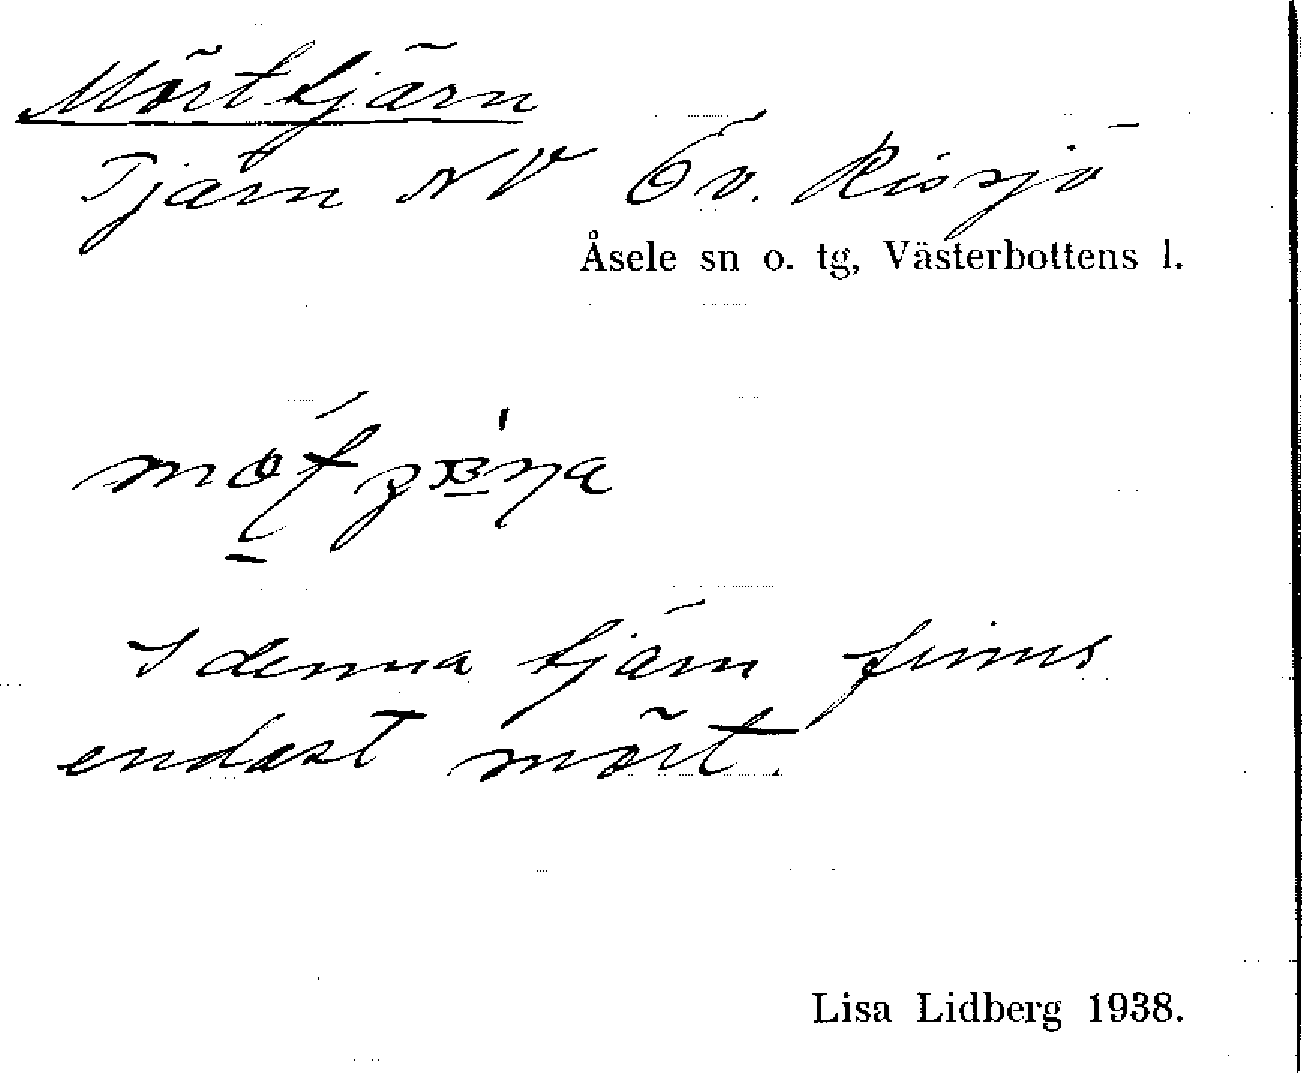 Mörttjärn
Tjärn NV Öv. Rissjö
Åsele sn o. tg, Västerbottens l.
I denna tjärn finns
endast mört.
Lisa Lidberg 1938.